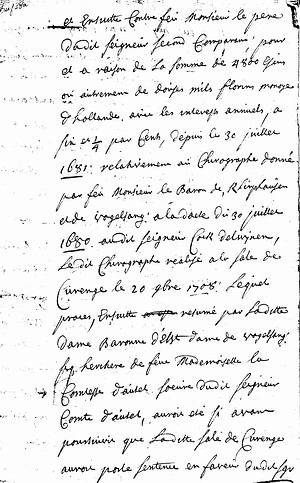 et Ensuitte Contre feu Monsieur le pere
dudit seigneur second Comparant pour
et a raison de La somme de 4800
ou autrement de douse mils florins monoye
d'hollande avec les interests annuels, a
six et 1/4 par Cent, depuis le 30 juillet
1681: relativement au Chirographe donné
par feu Monsieur le Baron de
et de Vogelsang: a la datte du 30 juillet
1680 audit seigneur
Le dit Chirographe réalisé a la sale de
Curenge le 20 9bre 1708: Lequel
proces, Ensuitte resumé par Laditte
dame Baronne d'Elst dame de Vogelsang:
herchere de feue Mademoiselle la
Comtesse d'autel soeure dudit seigneur
Comte d'autel, auroit eté si avant
poursuivie que Laditte sale de Curenge
auroit porté sentence en faveur dudit sgr